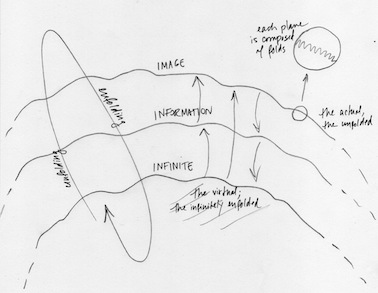 each plane
is composed
of folds
IMAGE
enfolding
the actual;
the unfolded
INFORMATION
unfolding
INFINITE
the virtual;
the infinitely enfolded